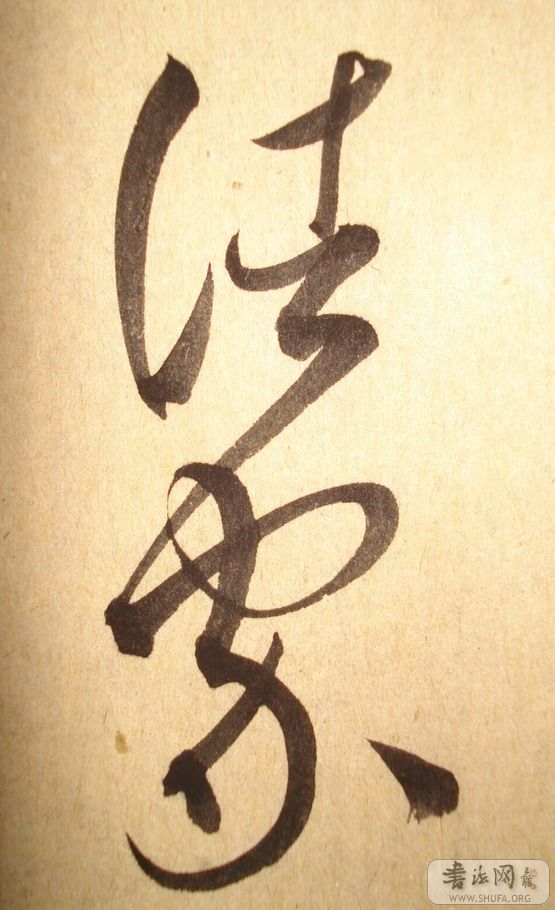 法家
書法网
WWW.SHUFA.ORG